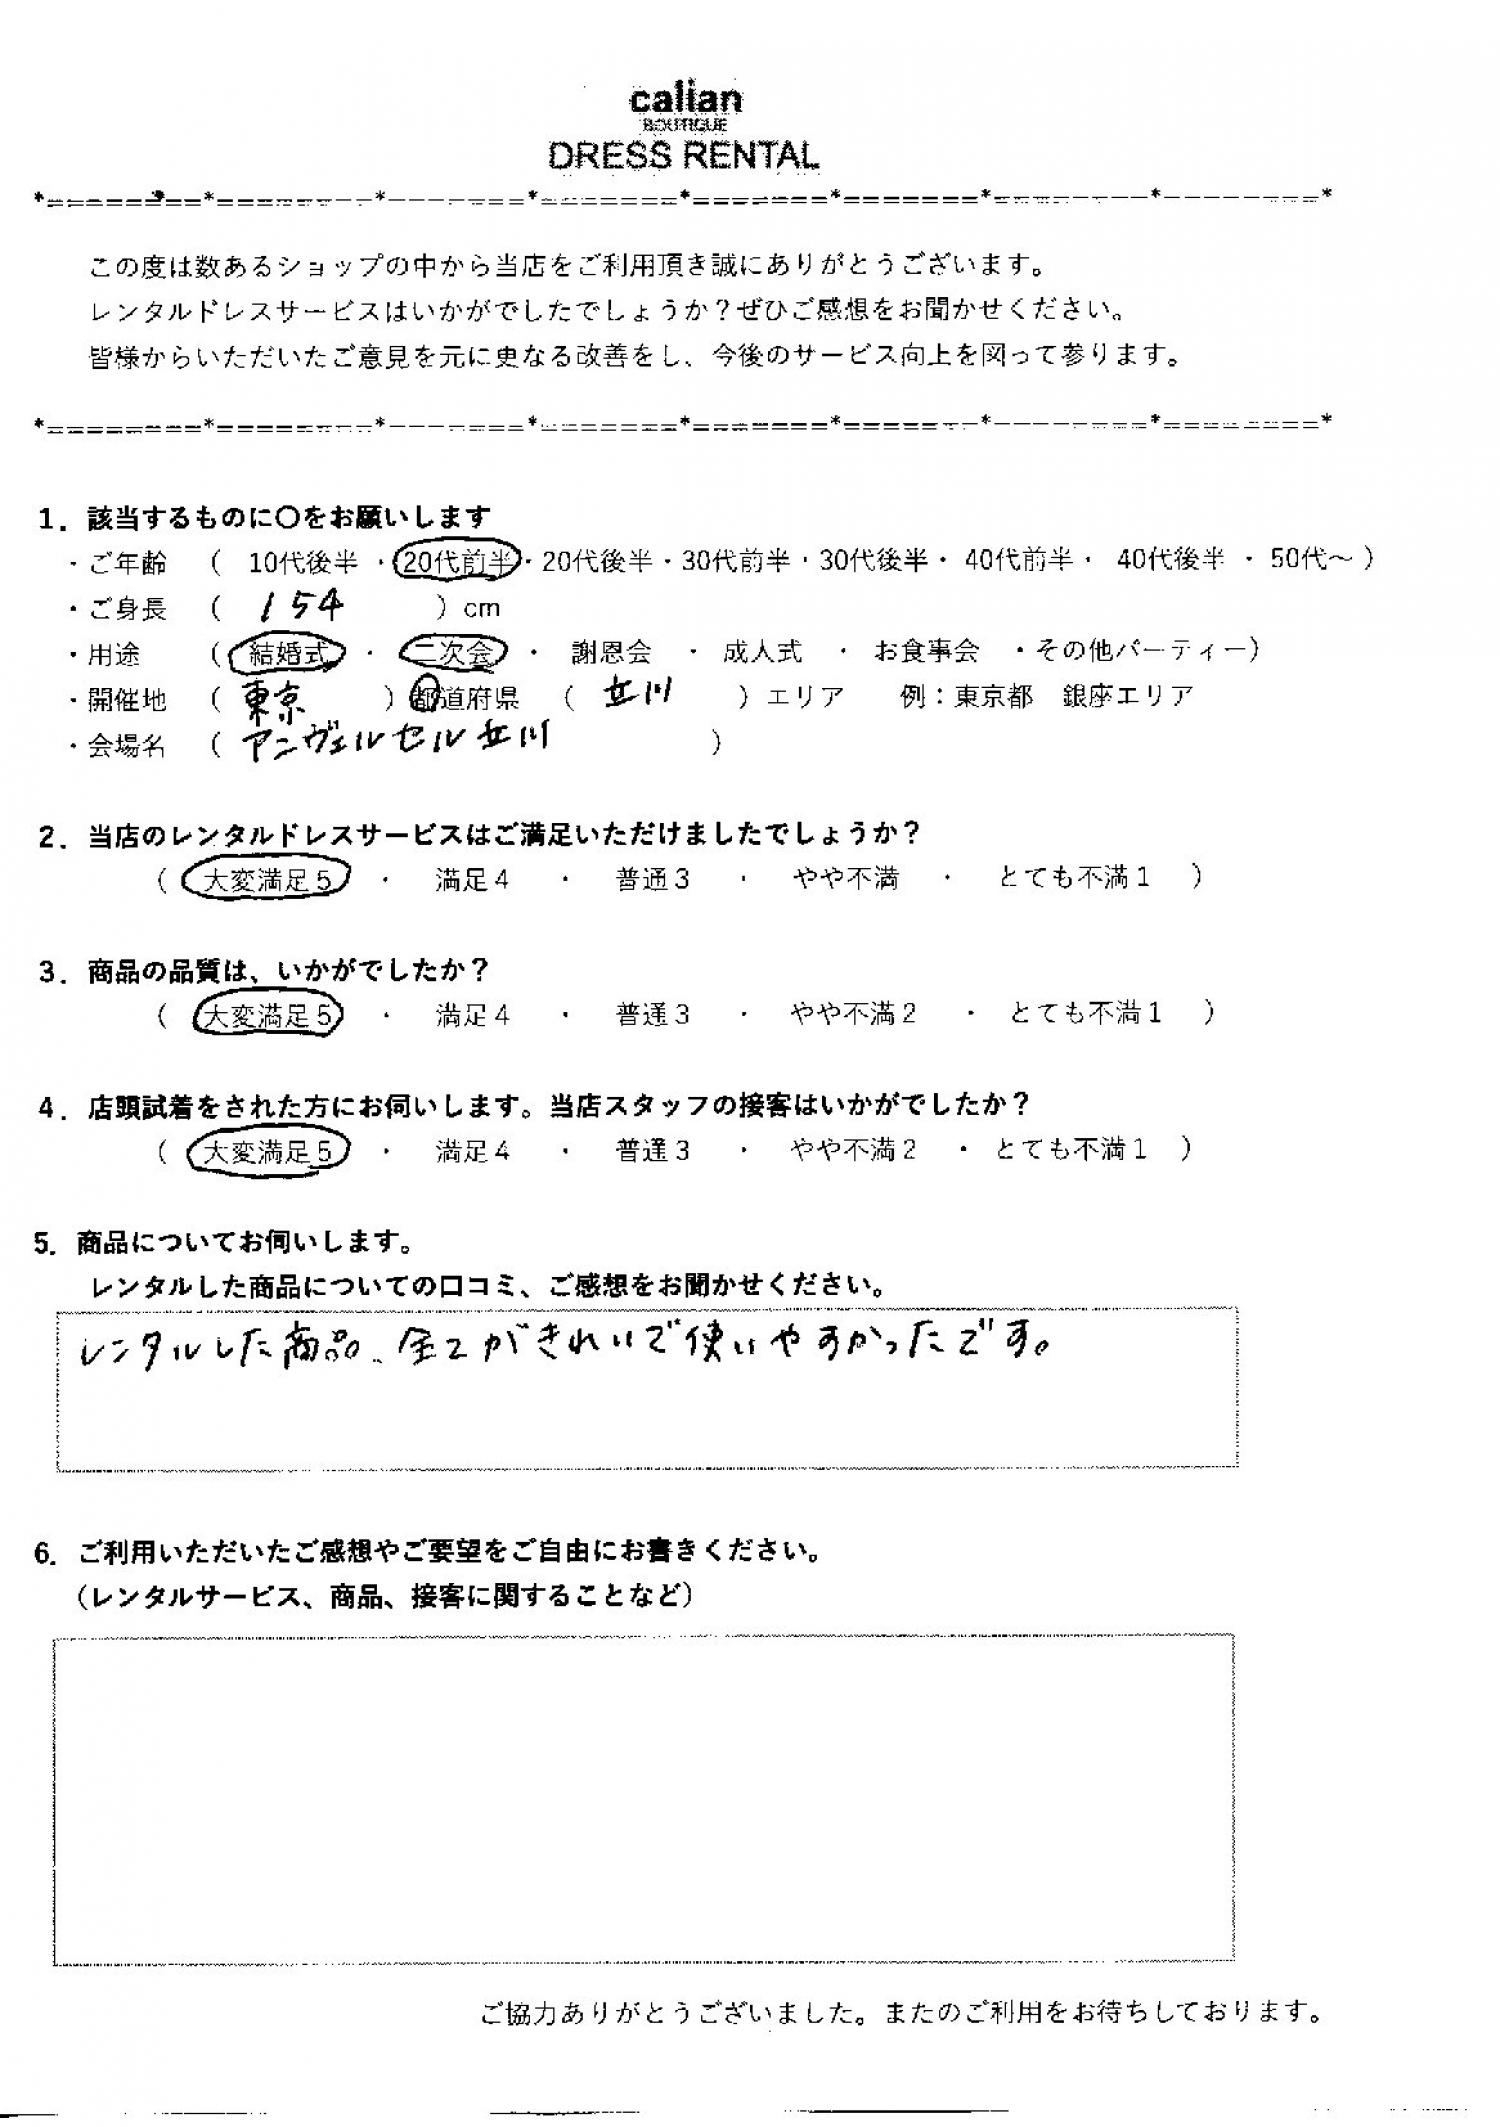 calian
BOUTIQUE
DRESS RENTAL
*========*========-*-------=*=======*=======*=======*=------–-*--------=*
この度は数あるショップの中から当店をご利用頂き誠にありがとうございます。
レンタルドレスサービスはいかがでしたでしょうか?ぜひご感想をお聞かせください。
皆様からいただいたご意見を元に更なる改善をし、今後のサービス向上を図って参ります。
*========*========-*-------=*=======*=======*=======*--------=*========*
1. 該当するものに〇をお願いします
・ご年齢 ( 10代後半 ・20代前半・20代後半・30代前半・30代後半・ 40代前半・ 40代後半 ・ 50代～ )
・ご身長 ( 154 ) cm
・用途 ( 結婚式 ・ 二次会 ・ 謝恩会 ・ 成人式 ・ お食事会 ・その他パーティー)
・開催地 ( 東京 ) 都道府県 ( 立川 ) エリア 例:東京都 銀座エリア
・会場名 ( アンヴェルセル立川 )
2. 当店のレンタルドレスサービスはご満足いただけましたでしょうか?
( 大変満足5 ・ 満足4 ・ 普通3 ・ やや不満 ・ とても不満1 )
3. 商品の品質は、いかがでしたか?
( 大変満足5 ・ 満足4 ・ 普通3 ・ やや不満2 ・ とても不満1 )
4. 店頭試着をされた方にお伺いします。当店スタッフの接客はいかがでしたか?
( 大変満足5 ・ 満足4 ・ 普通3 ・ やや不満2 ・ とても不満1 )
5. 商品についてお伺いします。
レンタルした商品についての口コミ、ご感想をお聞かせください。
レンタルした商品、全てがきれいで使いやすかったです。
6. ご利用いただいたご感想やご要望をご自由にお書きください。
(レンタルサービス、商品、接客に関することなど)
ご協力ありがとうございました。またのご利用をお待ちしております。